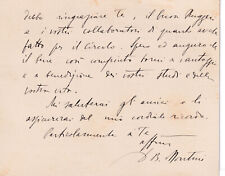 debbo ringraziare te, il buon Ruggeri
e i vostri collaboratori di quanto avete
fatto per il Circolo. Spero ed auguro che
il bene così compiuto torni a vantaggio
e a benedizione dei vostri studi e della
vostra vita.
Mi saluterai gli amici e li
assicurerai del mio cordiale ricordo.
Particolarmente a te
aff.mo
G B Montini